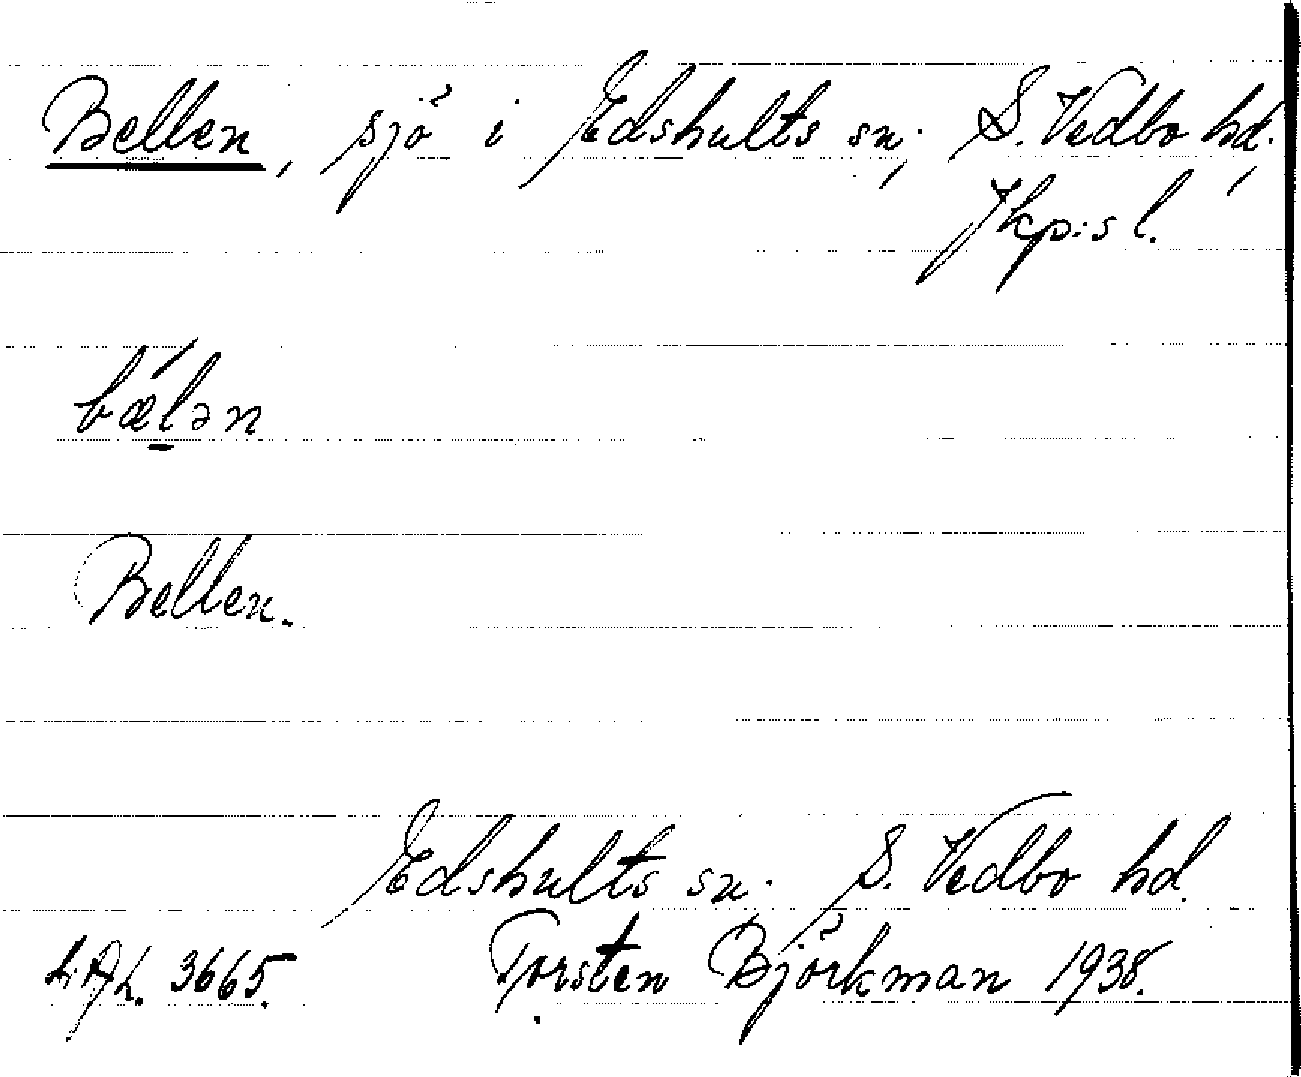 Bellen, sjö i Edshults sn, S. Vedbo hd,
Jkp:s l.
bǽ̱lən
Bellen.
Edshults sn. S. Vedbo hd.
L.A.L. 3665. Torsten Björkman 1938.